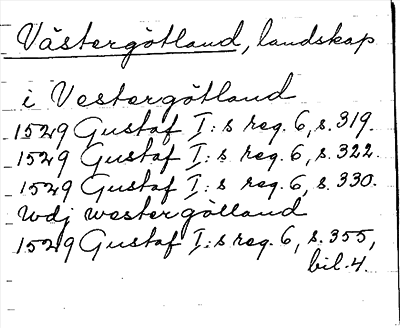 Västergötland, landskap
i Vestergötland
1529 Gustaf I:s reg. 6, s. 319.
1529 Gustaf I:s reg. 6, s. 322.
1529 Gustaf I:s reg. 6, s. 330.
wdj westergötland
1529 Gustaf I:s reg. 6, s. 355,
bil. 4.